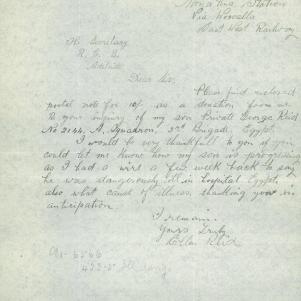 Station
Via Woocalla
East West Railway
Hr. Secretary
R. C. S.
Adelaide
Dear Sir,
Please find enclosed
postal note for 10/- as a donation from us
to your inquiry of my son Private George Reid
No 2144, A, Squadron, 3rd Brigade, Egypt.
I would be very thankfull to you if you
could let me know how my son is progressing
as I had a wire a few week back to say
he was dangerously ill in hospital Egypt,
also what cause of illness, thanking you in
anticipation.
I remain
Yours Truly
Reid